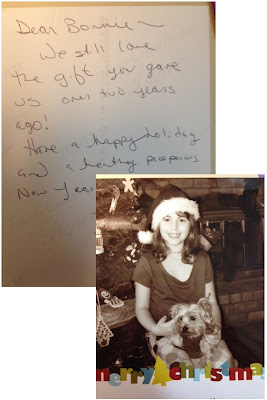 Dear Bonnie ~
We still love
the gift you gave
us over two years
ago!
Have a happy holiday
and a healthy prosperous
New Year
merry christma